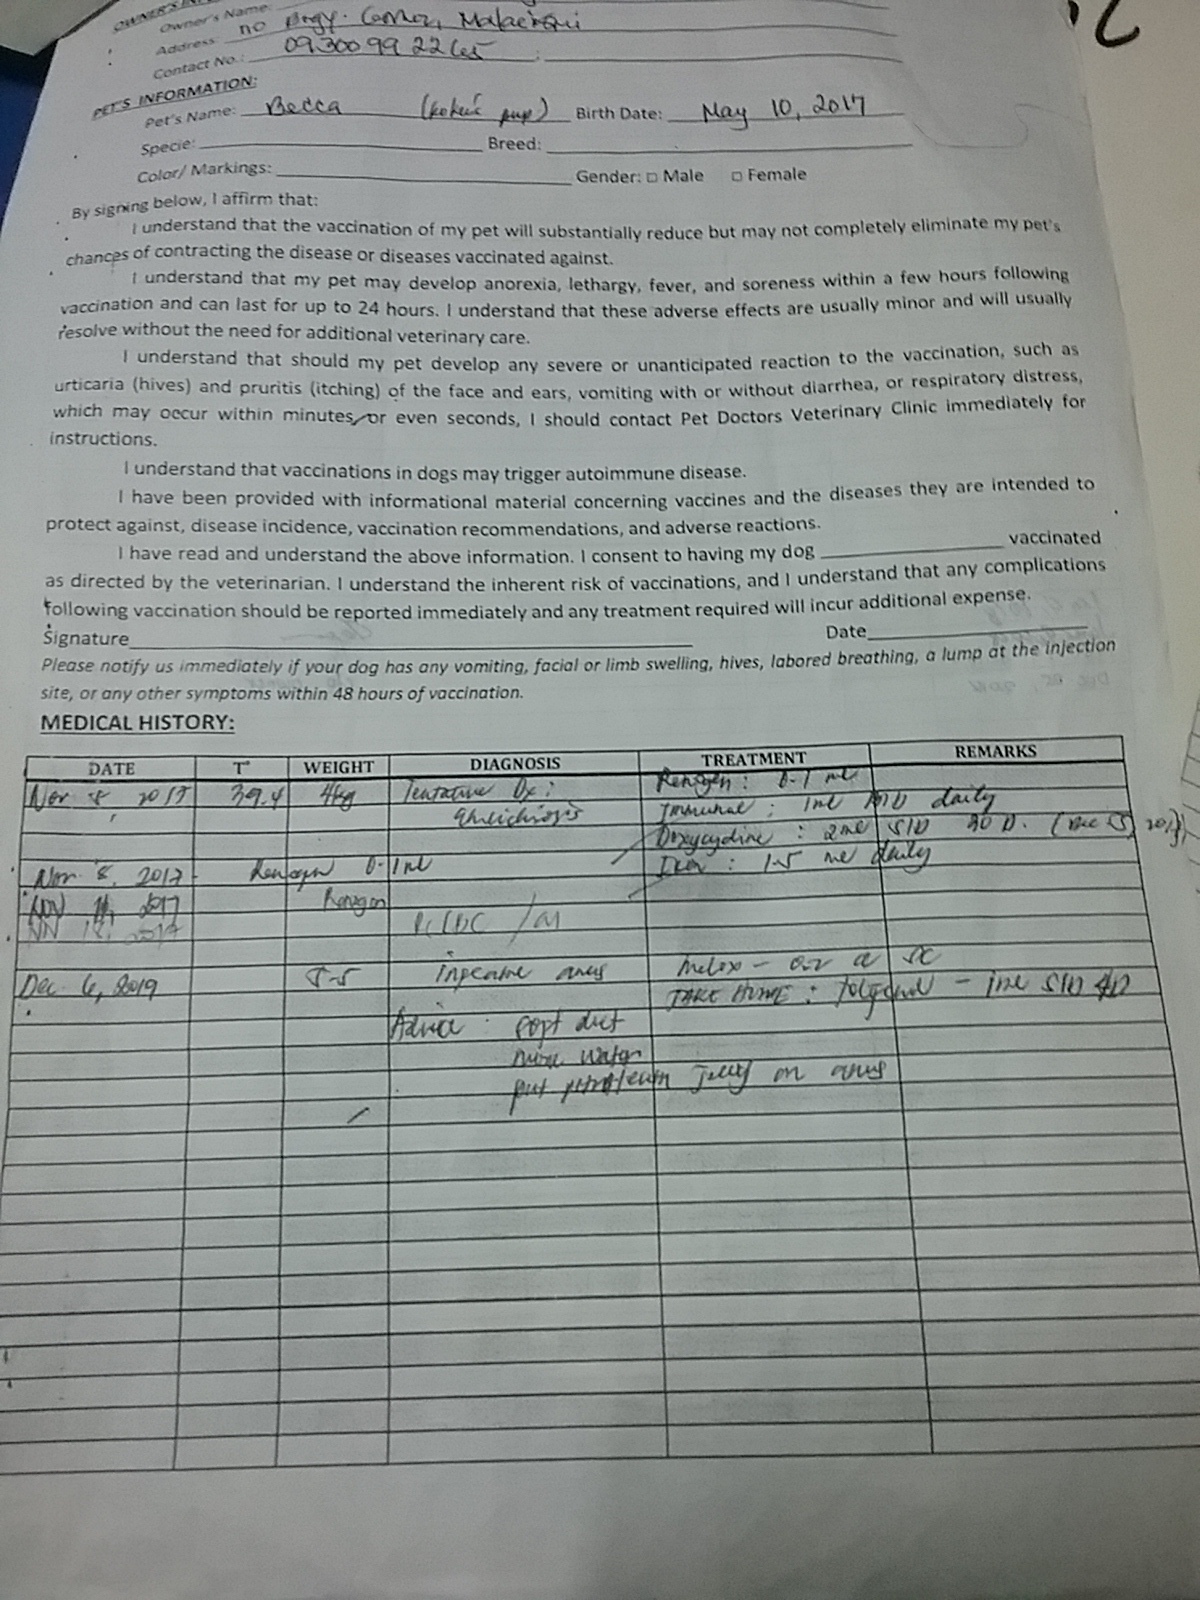 OWNER'S
Owner's Name:
Address: no Brgy.
Contact No.:
PET'S INFORMATION:
Pet's Name: Becca pup) Birth Date: May 10, 2017
Specie: Breed:
Color/ Markings: Gender: □ Male □ Female
By signing below, I affirm that:
I understand that the vaccination of my pet will substantially reduce but may not completely eliminate my pet's
chances of contracting the disease or diseases vaccinated against.
I understand that my pet may develop anorexia, lethargy, fever, and soreness within a few hours following
vaccination and can last for up to 24 hours. I understand that these adverse effects are usually minor and will usually
resolve without the need for additional veterinary care.
I understand that should my pet develop any severe or unanticipated reaction to the vaccination, such as
urticaria (hives) and pruritis (itching) of the face and ears, vomiting with or without diarrhea, or respiratory distress,
which may occur within minutes, or even seconds, I should contact Pet Doctors Veterinary Clinic immediately for
instructions.
I understand that vaccinations in dogs may trigger autoimmune disease.
I have been provided with informational material concerning vaccines and the diseases they are intended to
protect against, disease incidence, vaccination recommendations, and adverse reactions.
I have read and understand the above information. I consent to having my dog vaccinated
as directed by the veterinarian. I understand the inherent risk of vaccinations, and I understand that any complications
following vaccination should be reported immediately and any treatment required will incur additional expense.
Signature Date
Please notify us immediately if your dog has any vomiting, facial or limb swelling, hives, labored breathing, a lump at the injection
site, or any other symptoms within 48 hours of vaccination.
MEDICAL HISTORY:
DATE T° WEIGHT DIAGNOSIS TREATMENT REMARKS
Nov 8 2017 39.4 4kg Tentative Dx: Renogen: 0.1 ml
Immunal: 1ml daily
Doxycycline: 2ml SID 30 D.
ml daily
Nov. 8, 2017 Renogen 0.1ml
Nov 2017 Renogen
Dec. 6, 2019 5.5 anus
TAKE HOME: 1ml SID
Advice: soft diet
more water
put petroleum jelly on anus